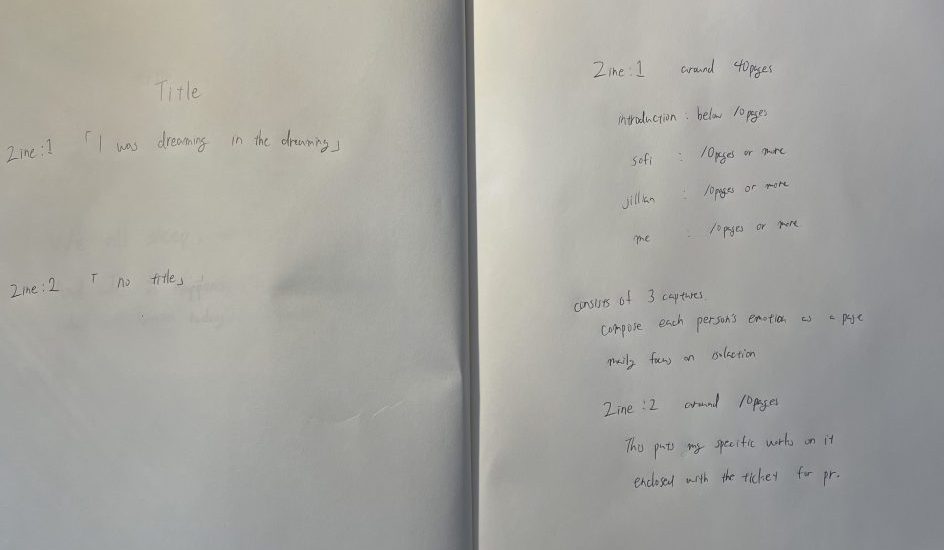 Title
Zine:1 「I was dreaming in the dreaming」
Zine:2 「no title」
Zine:1 around 40pages
introduction : below 10pages
sofi : 10pages or more
jillian : 10pages or more
me : 10pages or more
consists of 3 captures.
compose each person's emotion as a page
maily focus on
Zine:2 around 10pages
This puts my specific works on it
enclosed with the ticket for pr.